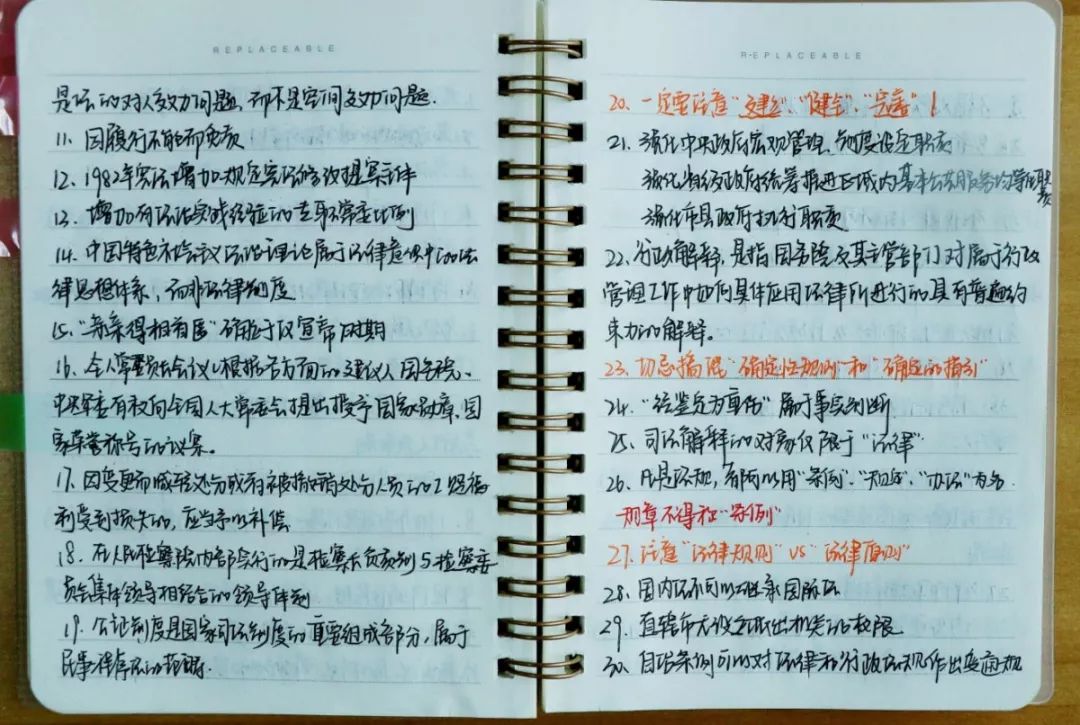 REPLACEABLE
是法的对人效力问题,而不是空间效力问题.
11. 因履行不能而免责
12. 1982年宪法增加规定宪法修改提案主体
13. 增加有法治实践经验的专职常委比例
14. 中国特色社会主义法治理论属于法律意识中的法
律思想体系,而非法律制度
15. “亲亲得相首匿”确立于汉宣帝时期
16. 全人常委员长会议根据各方面的建议,国务院、
中央军委有权向全国人大常委会提出授予国家勋章、国
家荣誉称号的议案。
17. 因变更而减轻处分或者被撤销处分人员的工资福
利受到损失的,应当予以补偿
18. 在人民检察院内部实行的是检察长负责制与检察委
员会集体领导相结合的领导体制
19. 公证制度是国家司法制度的重要组成部分,属于
民事程序法的范畴.
REPLACEABLE
20. 一定要注意“建立”、“健全”、“完善”!
21. 强化中央政府宏观管理、制度设定职责
强化省级政府统筹推进区域内基本公共服务均等化职责
强化市县政府执行职责
22. 行政解释,是指国务院及其主管部门对属于行政
管理工作中如何具体应用法律所进行的具有普遍约
束力的解释。
23. 切忌搞混“确定性规则”和“确定的指引”
24. “经鉴定为重伤”属于事实判断
25. 司法解释的对象仅限于“法律”
26. 凡是法规,都可以用“条例”、“规定”、“办法”为名.
规章不得称“条例”
27. 注意“法律规则”VS“法律原则”
28. 国内法不可以继承国际法
29. 直辖市无设立派出机关的权限
30. 自治条例可以对法律和行政法规作出变通规